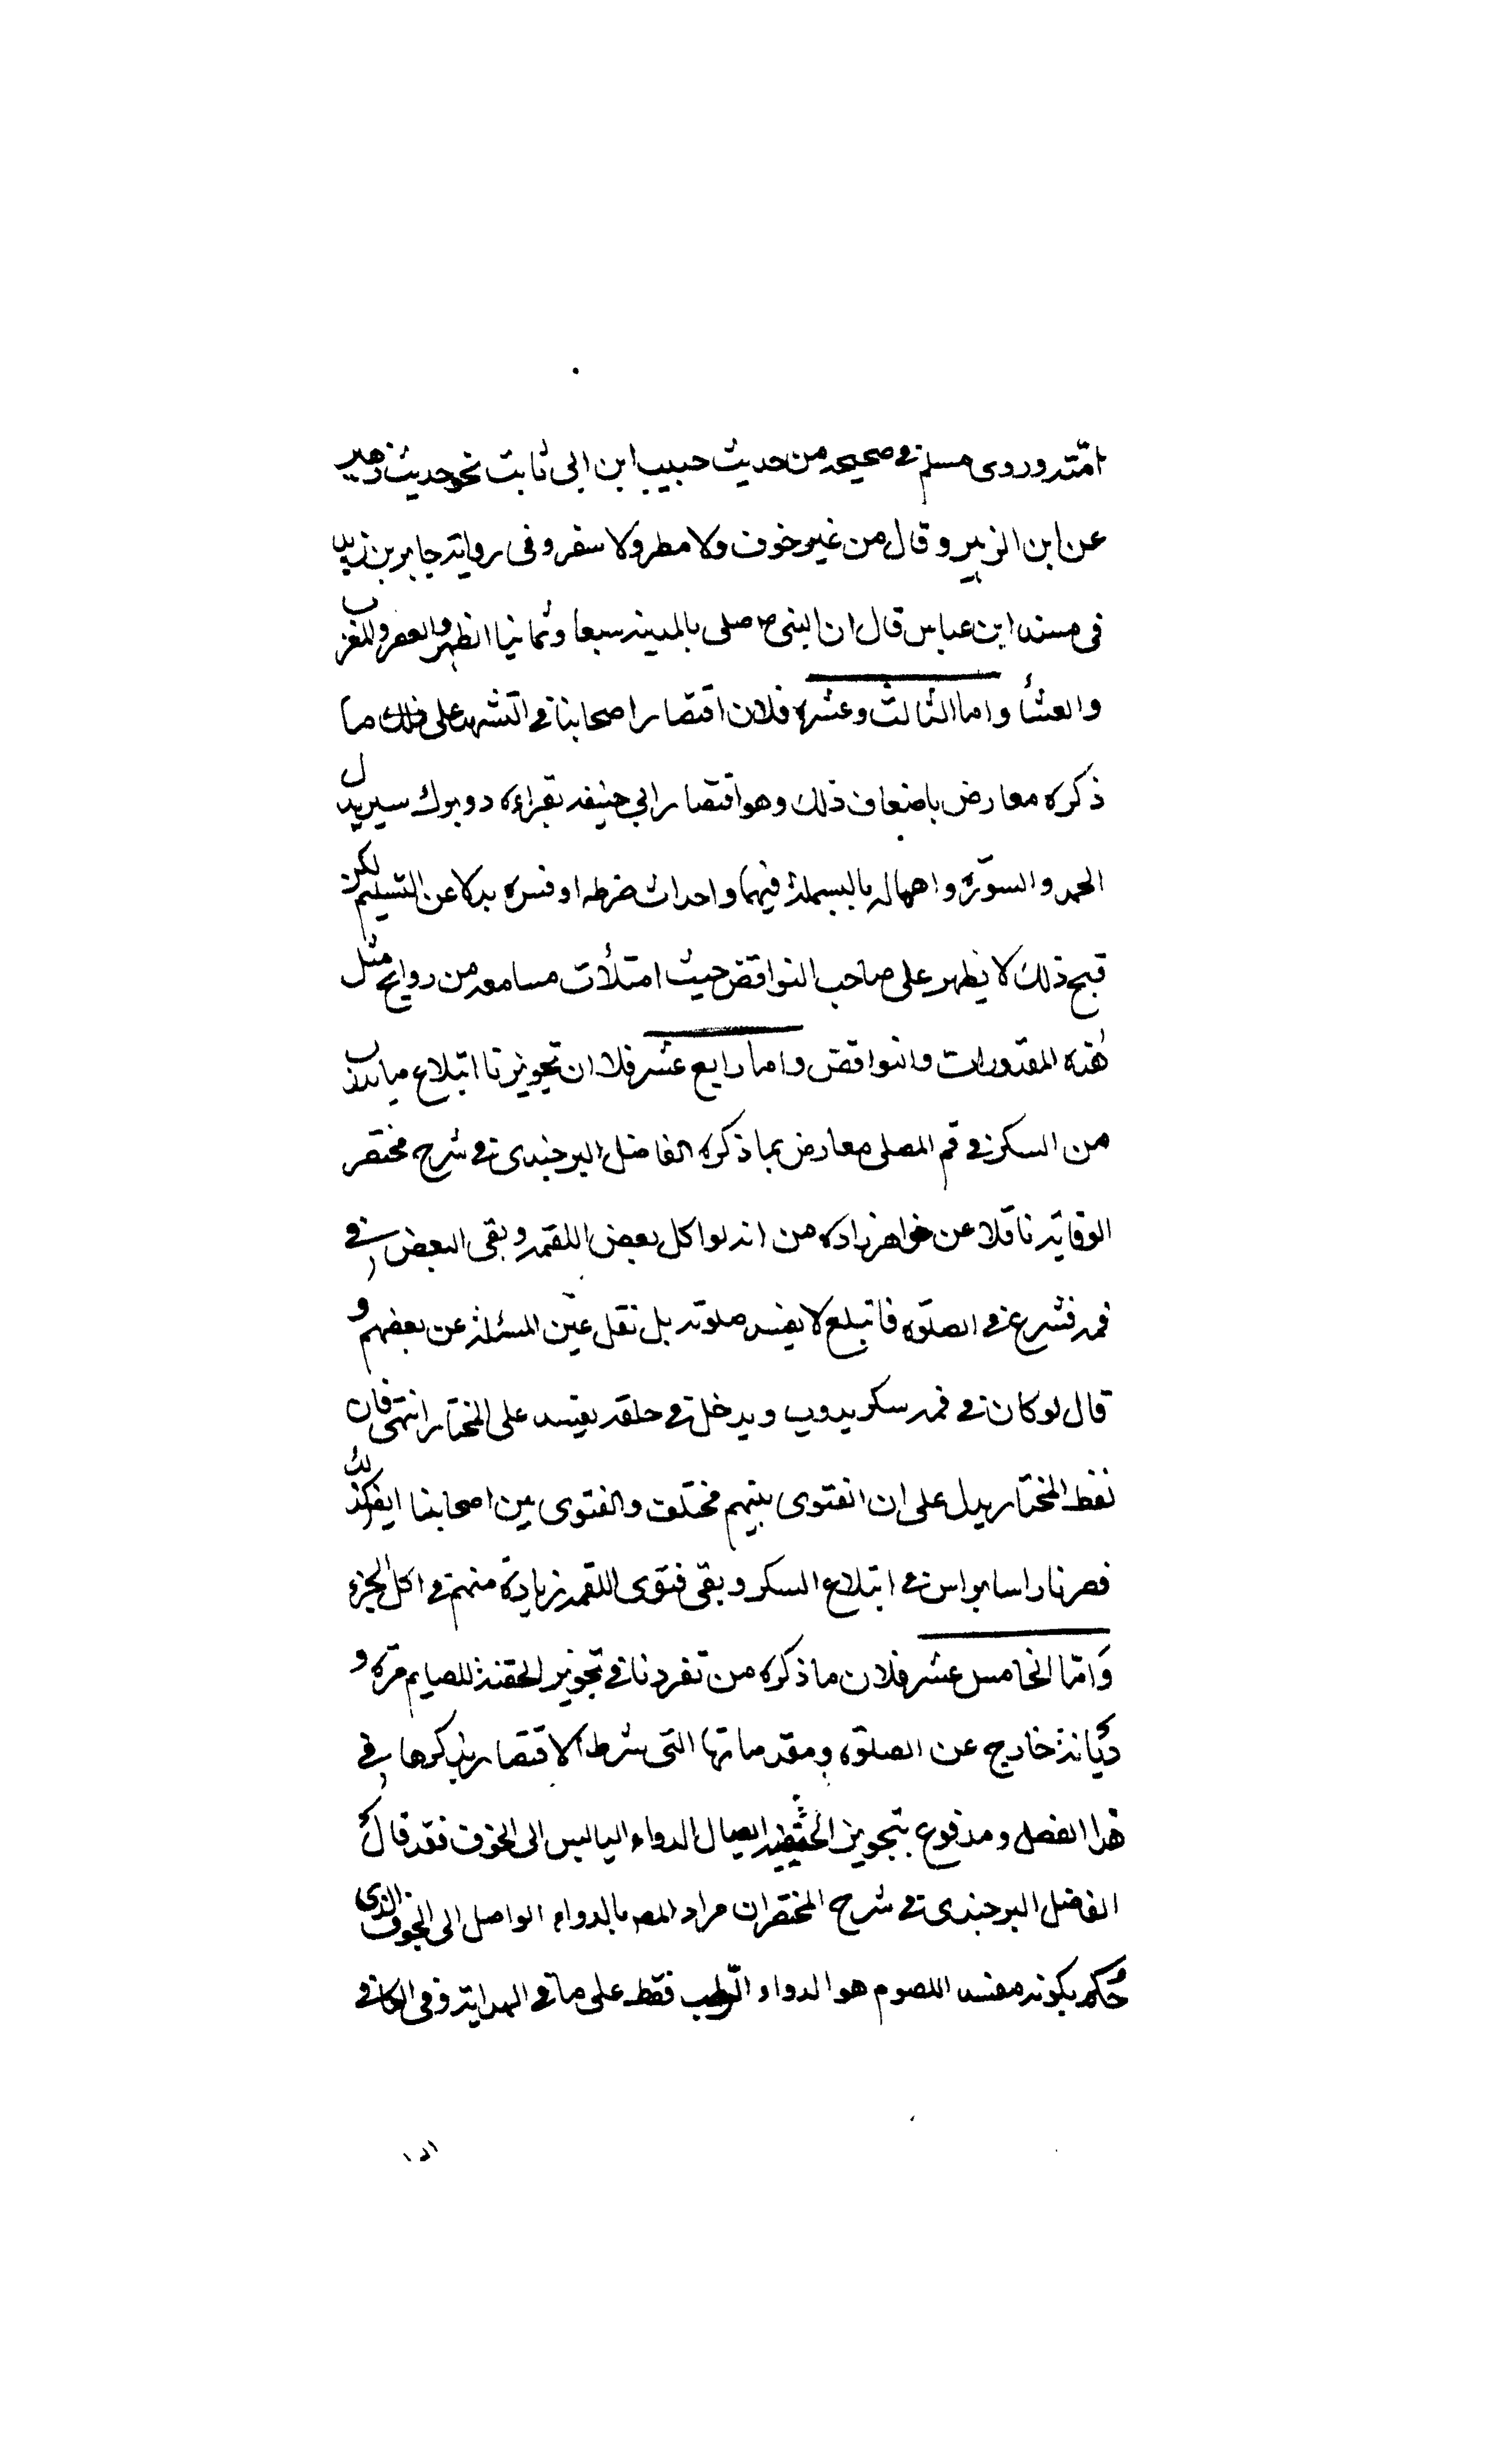 امته وروى مسلم في صحيحه من حديث حبيب ابن ابى ثابت نحو حديث زهير
عن ابن الزبير وقال من غير خوف ولا مطر ولا سفر وفى رواية جابر بن زيد
فى مسند ابن عباس قال ان النبى ص صلى بالمدينة سبعا وثمانيا الظهر والعصر والمغرب
والعشأ واما الثالث وعشره فلان اقتصار اصحابنا في التشهد على ذلك ما
ذكره معارض باضعاف ذلك وهو اقتصار ابي حنيفه بقراءة دو برك سبز بدل
الحمد والسورة واهماله بالبسملة فيهما واحداث ضرطه او فسوه بدلا عن التسليم لكن
قبح ذلك لا يظهر على صاحب النواقض حيث امتلأت مسامعه من روايح مثل
هذه القذورات والنواقض واما رابع عشر فلان تجويزنا ابتلاع ما يذاب
من السكر في فم المصلى معارض بما ذكره الفاضل البرجندى في شرح مختصر
الوقاية ناقلا عن خواهرزاده من انه لو اكل بعض اللقمه وبقى البعض في
فمه فشرع في الصلوة فابتلع لا يفسد صلوته بل نقل عين المسئلة عن بعضهم و
قال لو كان في فمه سكر يدوب ويدخل في حلقه يفسد على المختار انتهى فان
لفظ المختار يدل على ان الفتوى بينهم مختلف والفتوى بين اصحابنا ايض كذلك
فصرنا راسا براس في ابتلاع السكر وبقى فتوى اللقمه زيادة منهم في اكل الجزء
وامّا الخامس عشر فلان ما ذكره من تفردنا في تجويز الحقنة للصايم مرة و
خارج عن الصلوة ومقدماتها التى شرط الاقتصار بذكرها في
هذا الفصل ومدفوع بتجويز الحنفيه ايصال الدواء اليابس الى الجوف فقد قال
الفاضل البرجندى في شرح المختصر ان مراد المصـ بالدواء الواصل الى الجوف الذى
حكم بكونه مفسد اللصوم هو الدواء الرطب فقط على ما في الهداية وفى الكافي